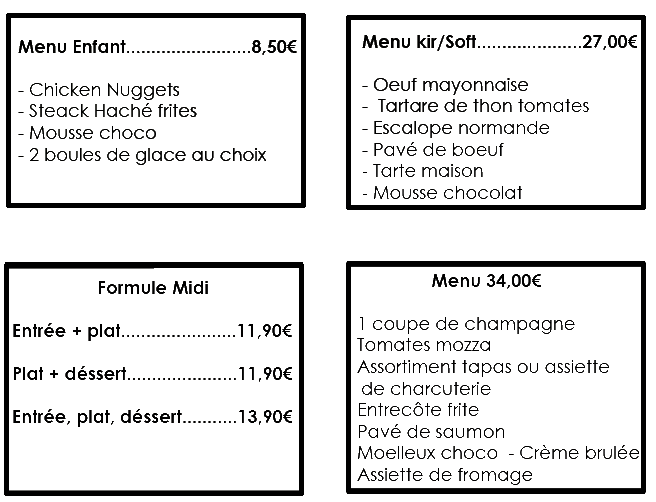 Menu Enfant........................8,50€
- Chicken Nuggets
- Steack Haché frites
- Mousse choco
- 2 boules de glace au choix
Menu kir/Soft....................27,00€
- Oeuf mayonnaise
- Tartare de thon tomates
- Escalope normande
- Pavé de boeuf
- Tarte maison
- Mousse chocolat
Formule Midi
Entrée + plat......................11,90€
Plat + déssert.....................11,90€
Entrée, plat, déssert...........13,90€
Menu 34,00€
1 coupe de champagne
Tomates mozza
Assortiment tapas ou assiette
de charcuterie
Entrecôte frite
Pavé de saumon
Moelleux choco - Crème brulée
Assiette de fromage